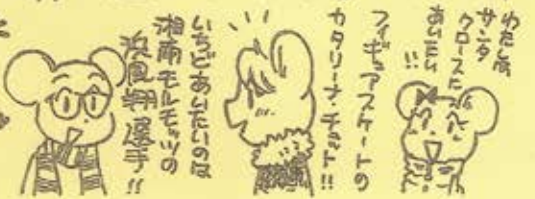 わたしは
サンタ
クロースに
あいたい
!!
フィギュアスケートの
カタリーナ・チョット!!
いちどあいたいのは
湘南モルモッツの
浜風翔選手!!